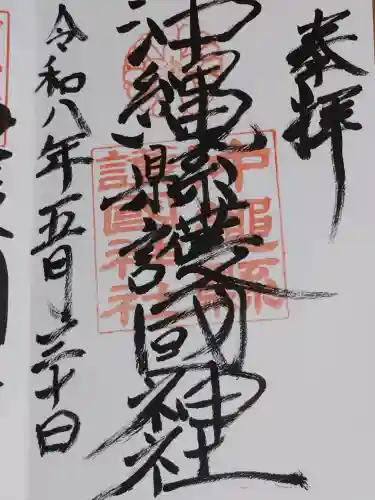 奉拝
沖縄縣護國神社
沖縄縣護國神社
令和八年五月三十日